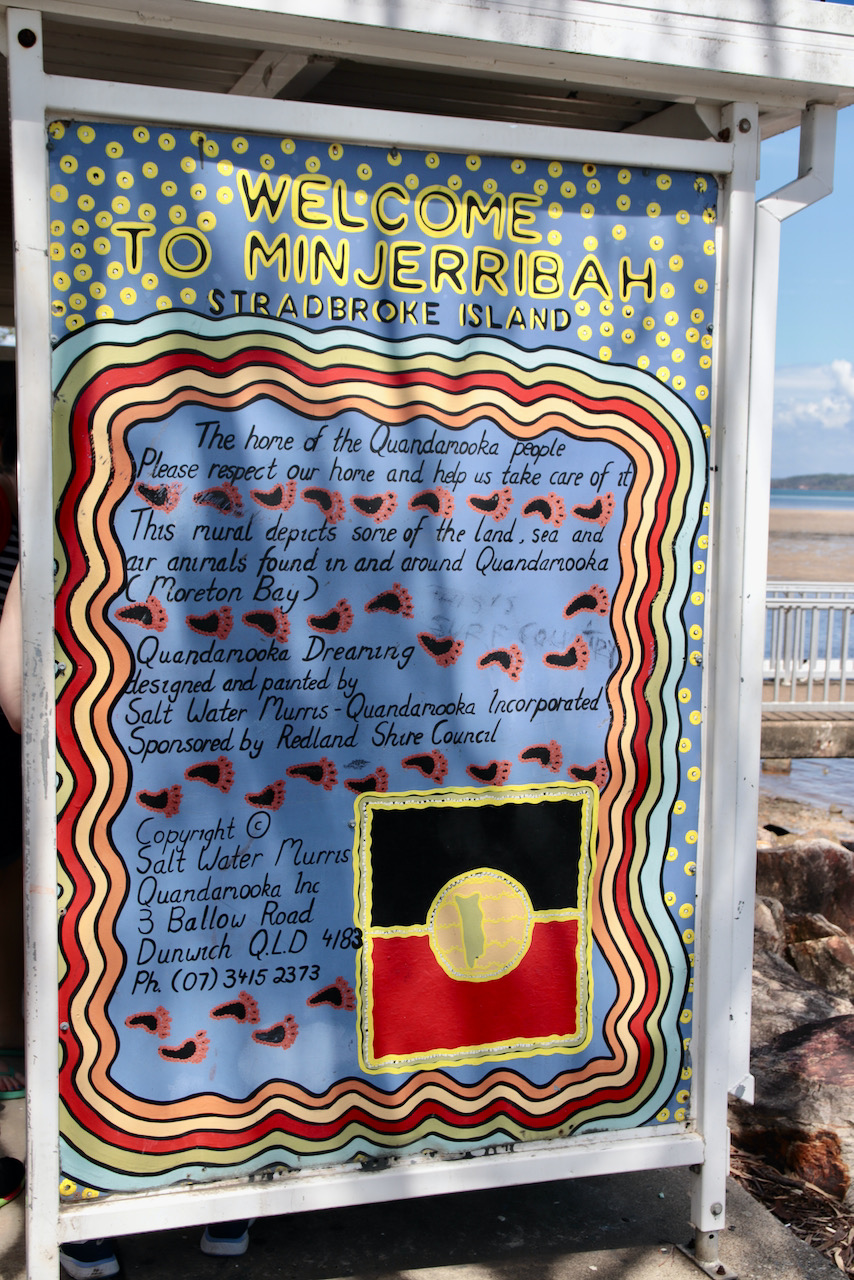 WELCOME
TO MINJERRIBAH
STRADBROKE ISLAND
The home of the Quandamooka people
Please respect our home and help us take care of it
This mural depicts some of the land, sea and
air animals found in and around Quandamooka
(Moreton Bay)
THIS IS
SURF COUNTRY
Quandamooka Dreaming
designed and painted by
Salt Water Murris-Quandamooka Incorporated
Sponsored by Redland Shire Council
Copyright ©
Salt Water Murris
Quandamooka Inc
3 Ballow Road
Dunwich Q.L.D 4183
Ph. (07) 3415 2373